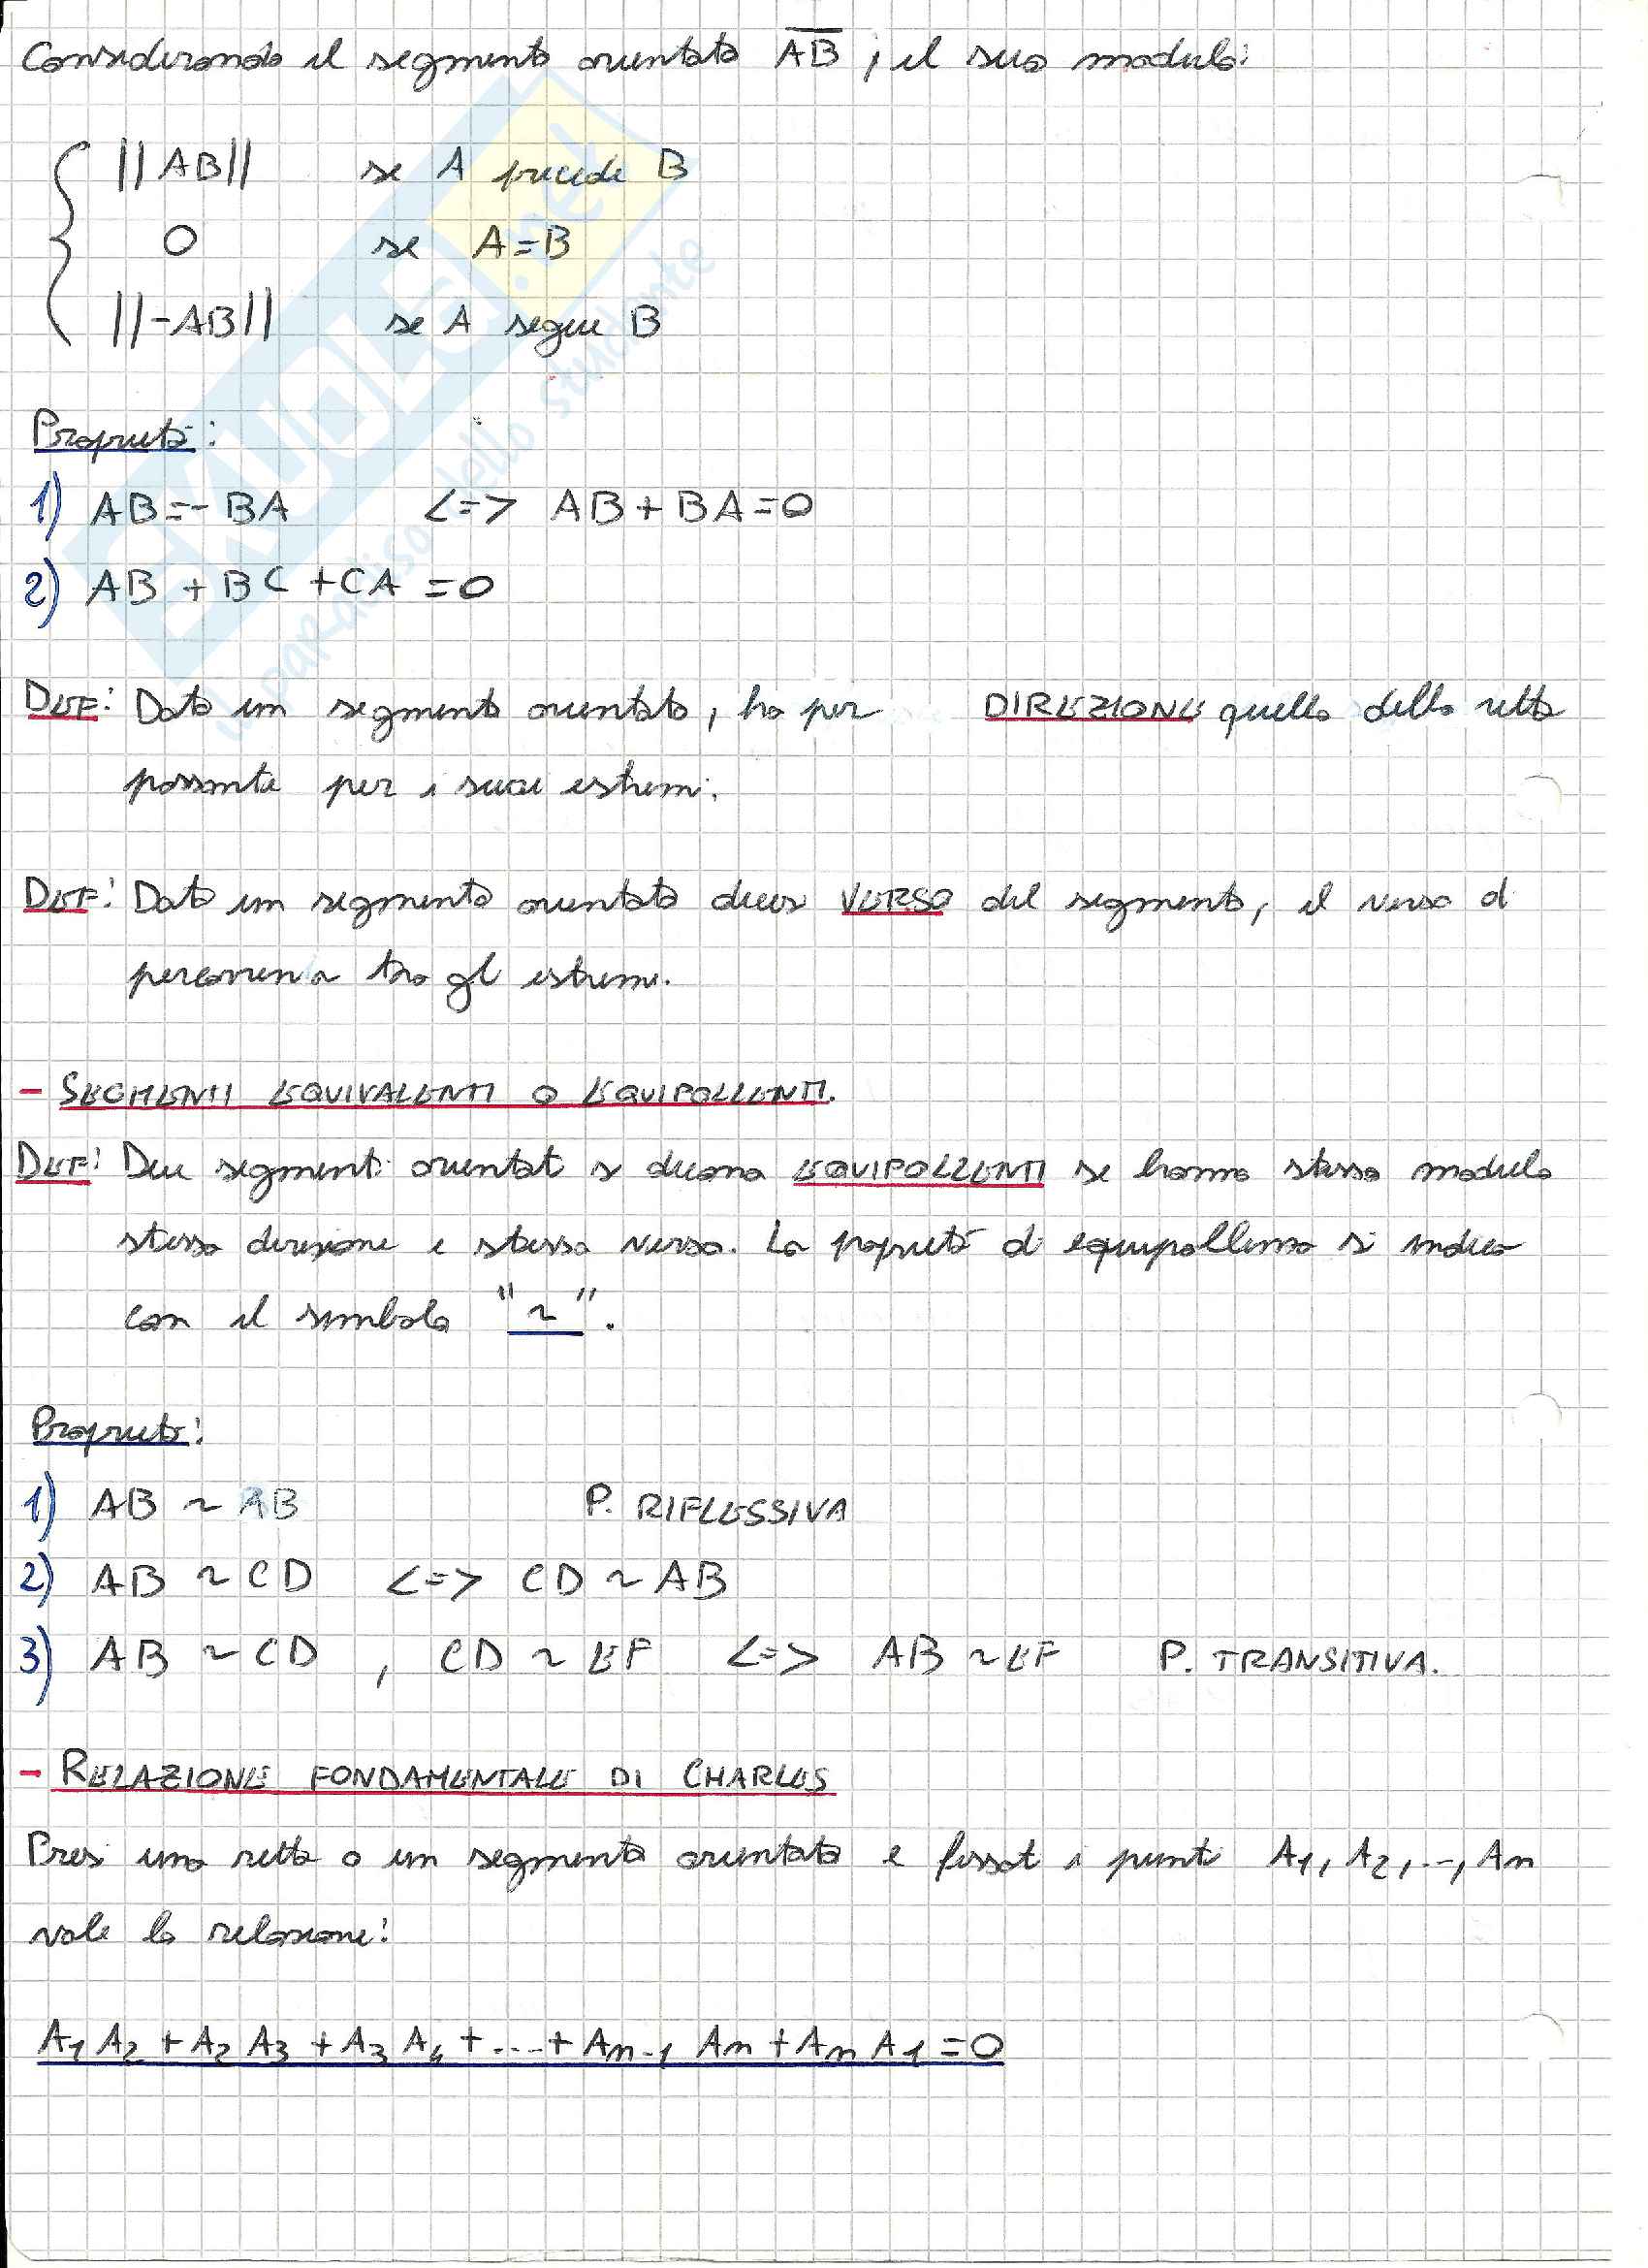 Considerando il segmento orientato AB, il suo modulo:
||AB|| se A precede B
0 se A=B
||-AB|| se A segue B
Proprietà:
1) AB=-BA <=> AB+BA=0
2) AB+BC+CA=0
DEF: Dato un segmento orientato, ha per DIREZIONE quella della retta
passante per i suoi estremi.
DEF: Dato un segmento orientato dicesi VERSO del segmento, il verso di
percorrenza tra gli estremi.
- SEGMENTI EQUIVALENTI O EQUIPOLLENTI.
DEF: Due segmenti orientati si dicono EQUIPOLLENTI se hanno stesso modulo
stessa direzione e stesso verso. La propietà di equipollenza si indica
con il simbolo "~".
Proprietà:
1) AB ~ AB P. RIFLESSIVA
2) AB ~ CD <=> CD ~ AB
3) AB ~ CD , CD ~ EF <=> AB ~ EF P. TRANSITIVA.
- RELAZIONE FONDAMENTALE DI CHARLES
Presi una retta o un segmento orientato e fissati i punti A1, A2, ..., An
vale la relazione:
A1 A2 + A2 A3 + A3 A4 + .... + An-1 An + An A1 = 0